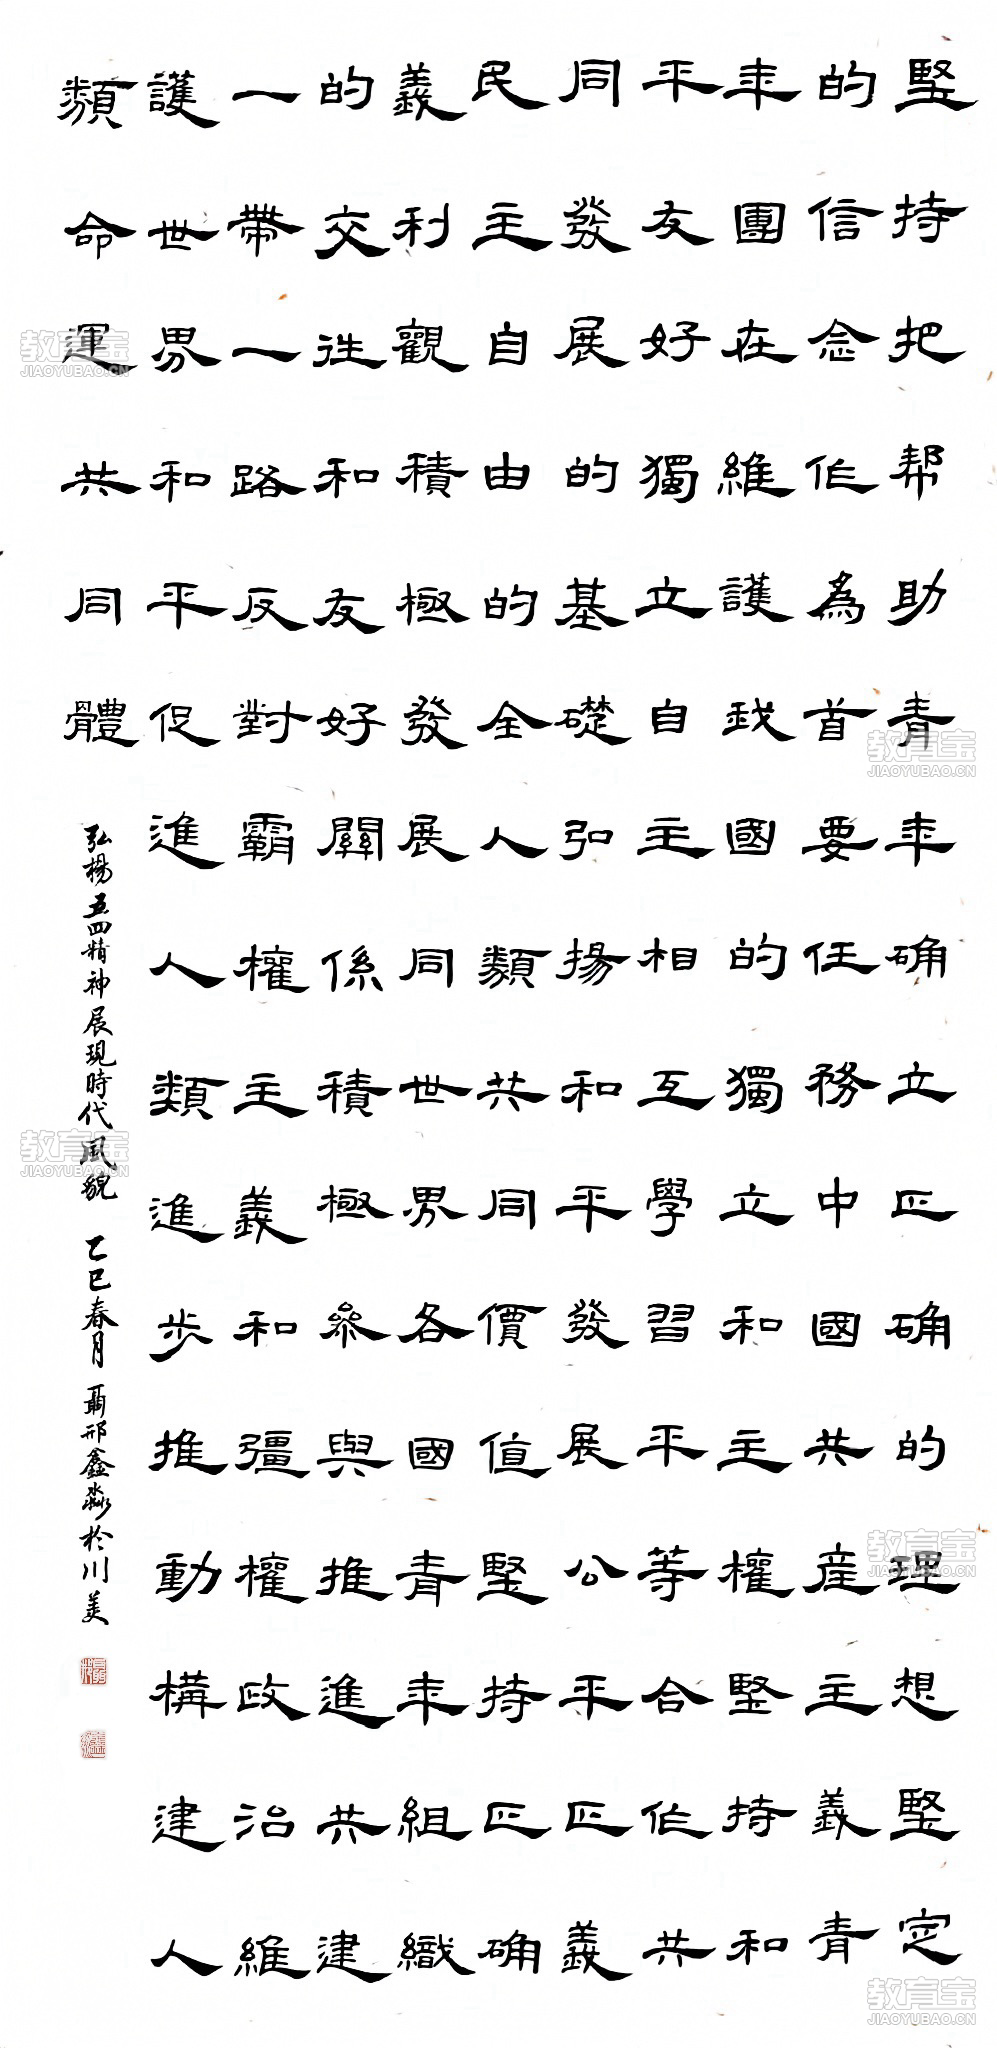 堅持把帮助青年确立正确的理想堅定
的信念作為首要任務中國共産主義青
年團在維護我國的獨立和主權堅持和
平友好獨立自主相互學習平等合作共
同發展的基礎引揚和平發展公平正義
民主自由的全人類共同價值堅持正确
義利觀積極發展同世界各國青年組織
的交往和友好關係積極參與推進共建
一帶一路反對霸權主義和彊權政治維
護世界和平促進人類進步推動構建人
類命運共同體
弘楊五四精神展現時代風貌 乙巳春月 聶邢鑫淼於川美
教育宝
JIAOYUBAO.CN
教育宝
JIAOYUBAO.CN
教育宝
JIAOYUBAO.CN
教育宝
JIAOYUBAO.CN
教育宝
JIAOYUBAO.CN